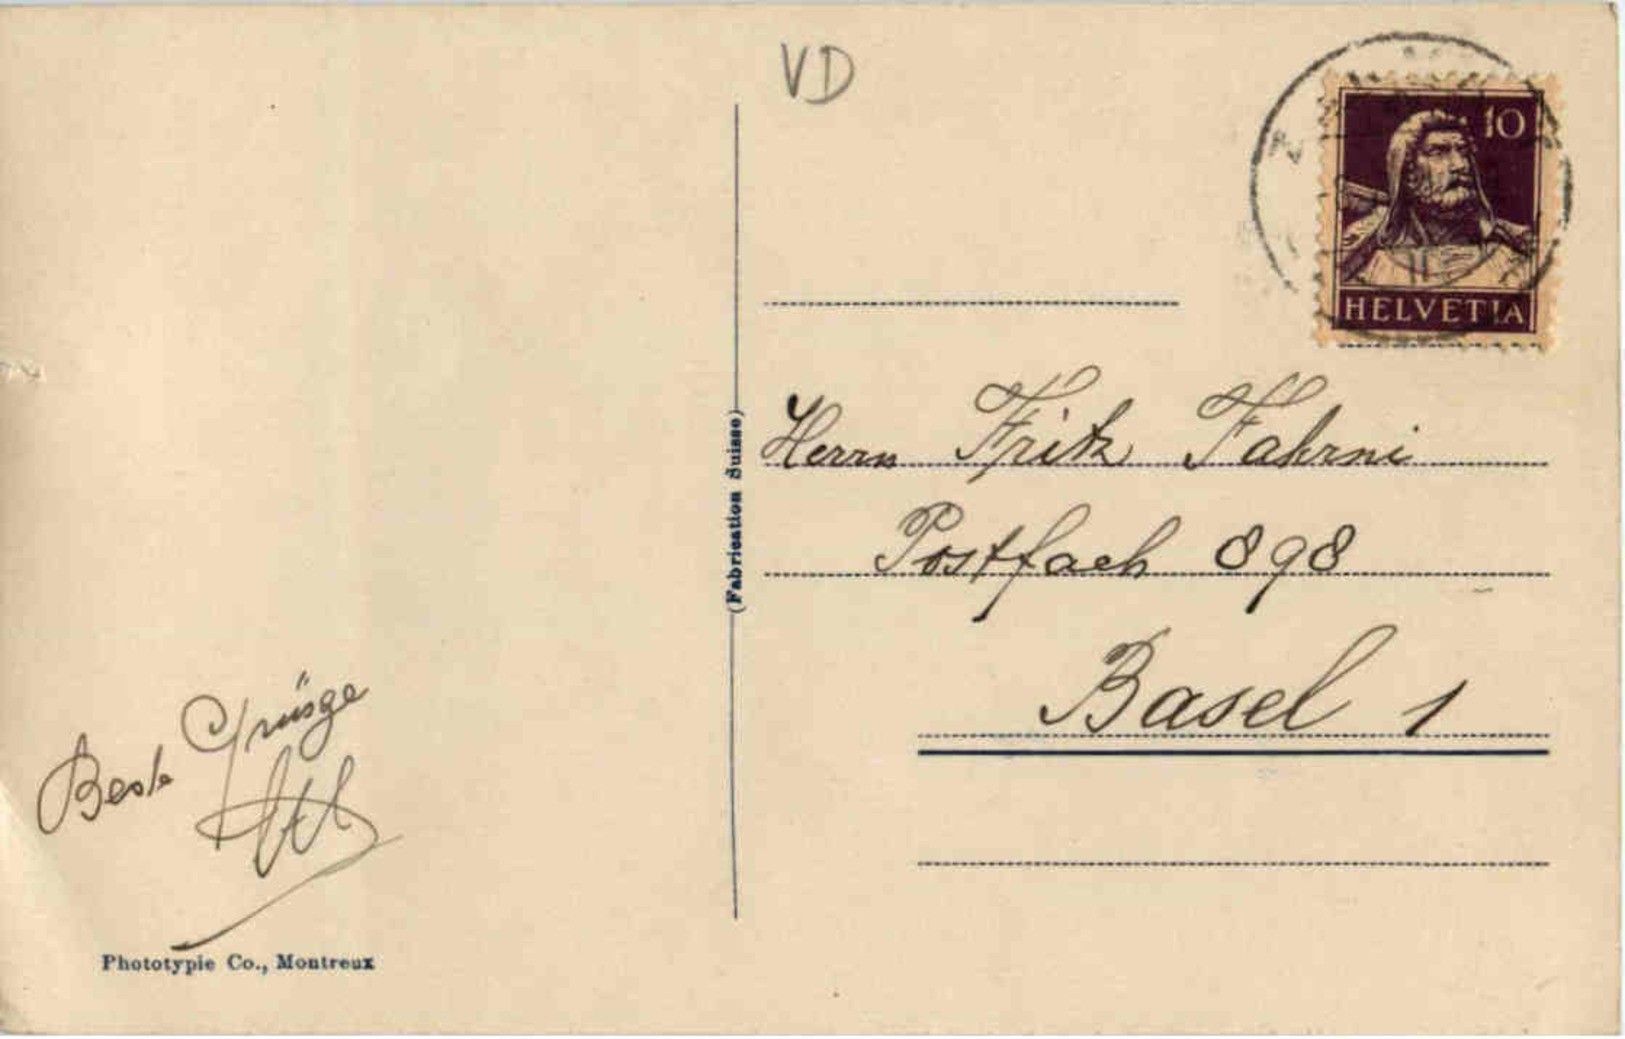 VD
10
HELVETIA
Herrn Fritz Fahrni
Postfach 898
Basel 1
(Fabrication Suisse)
Beste Grüsse
Phototypie Co., Montreux